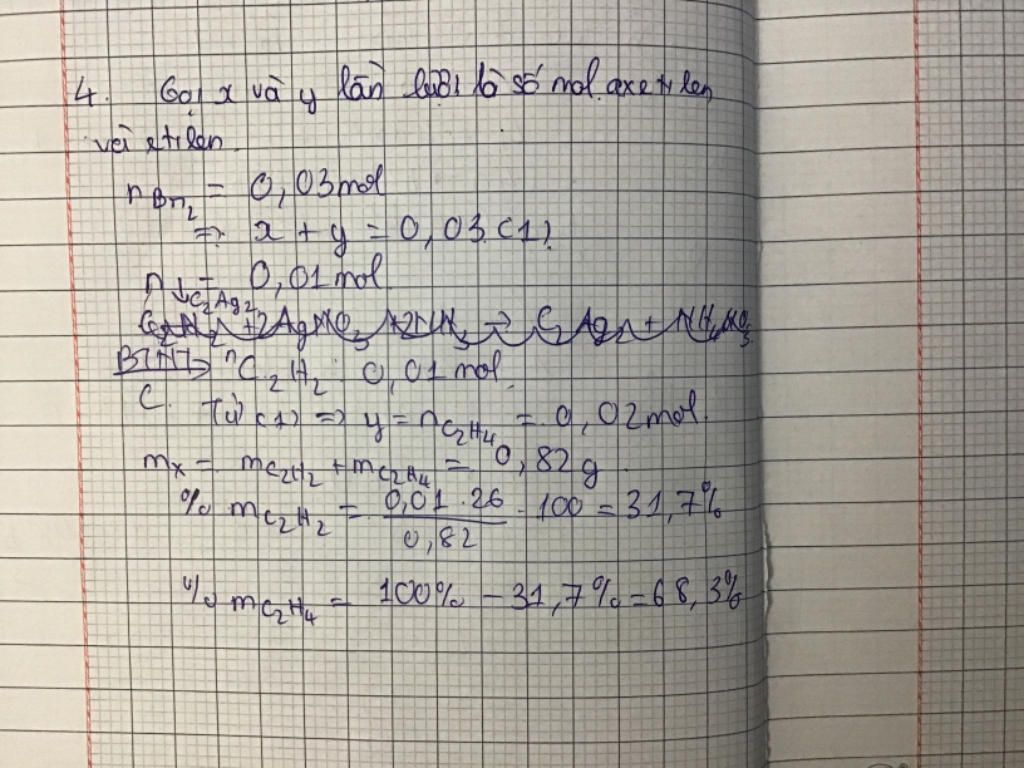 4. Gọi x và y lần lượt là số mol axetilen
và etilen.
n Br₂ = 0,03 mol
⇒ x + y = 0,03 (1)
n ↓C₂Ag₂ = 0,01 mol
C₂H₂ + 2AgNO₃ + 2NH₃ → C₂Ag₂ + NH₄NO₃
BTNT C. → nC₂H₂ : 0,01 mol.
Từ (1) ⇒ y = nC₂H₄ = 0,02 mol.
mx = mC₂H₂ + mC₂H₄ = 0,82 g
% mC₂H₂ = 0,01 . 26 / 0,82 . 100 = 31,7%
% mC₂H₄ = 100% - 31,7% = 68,3%